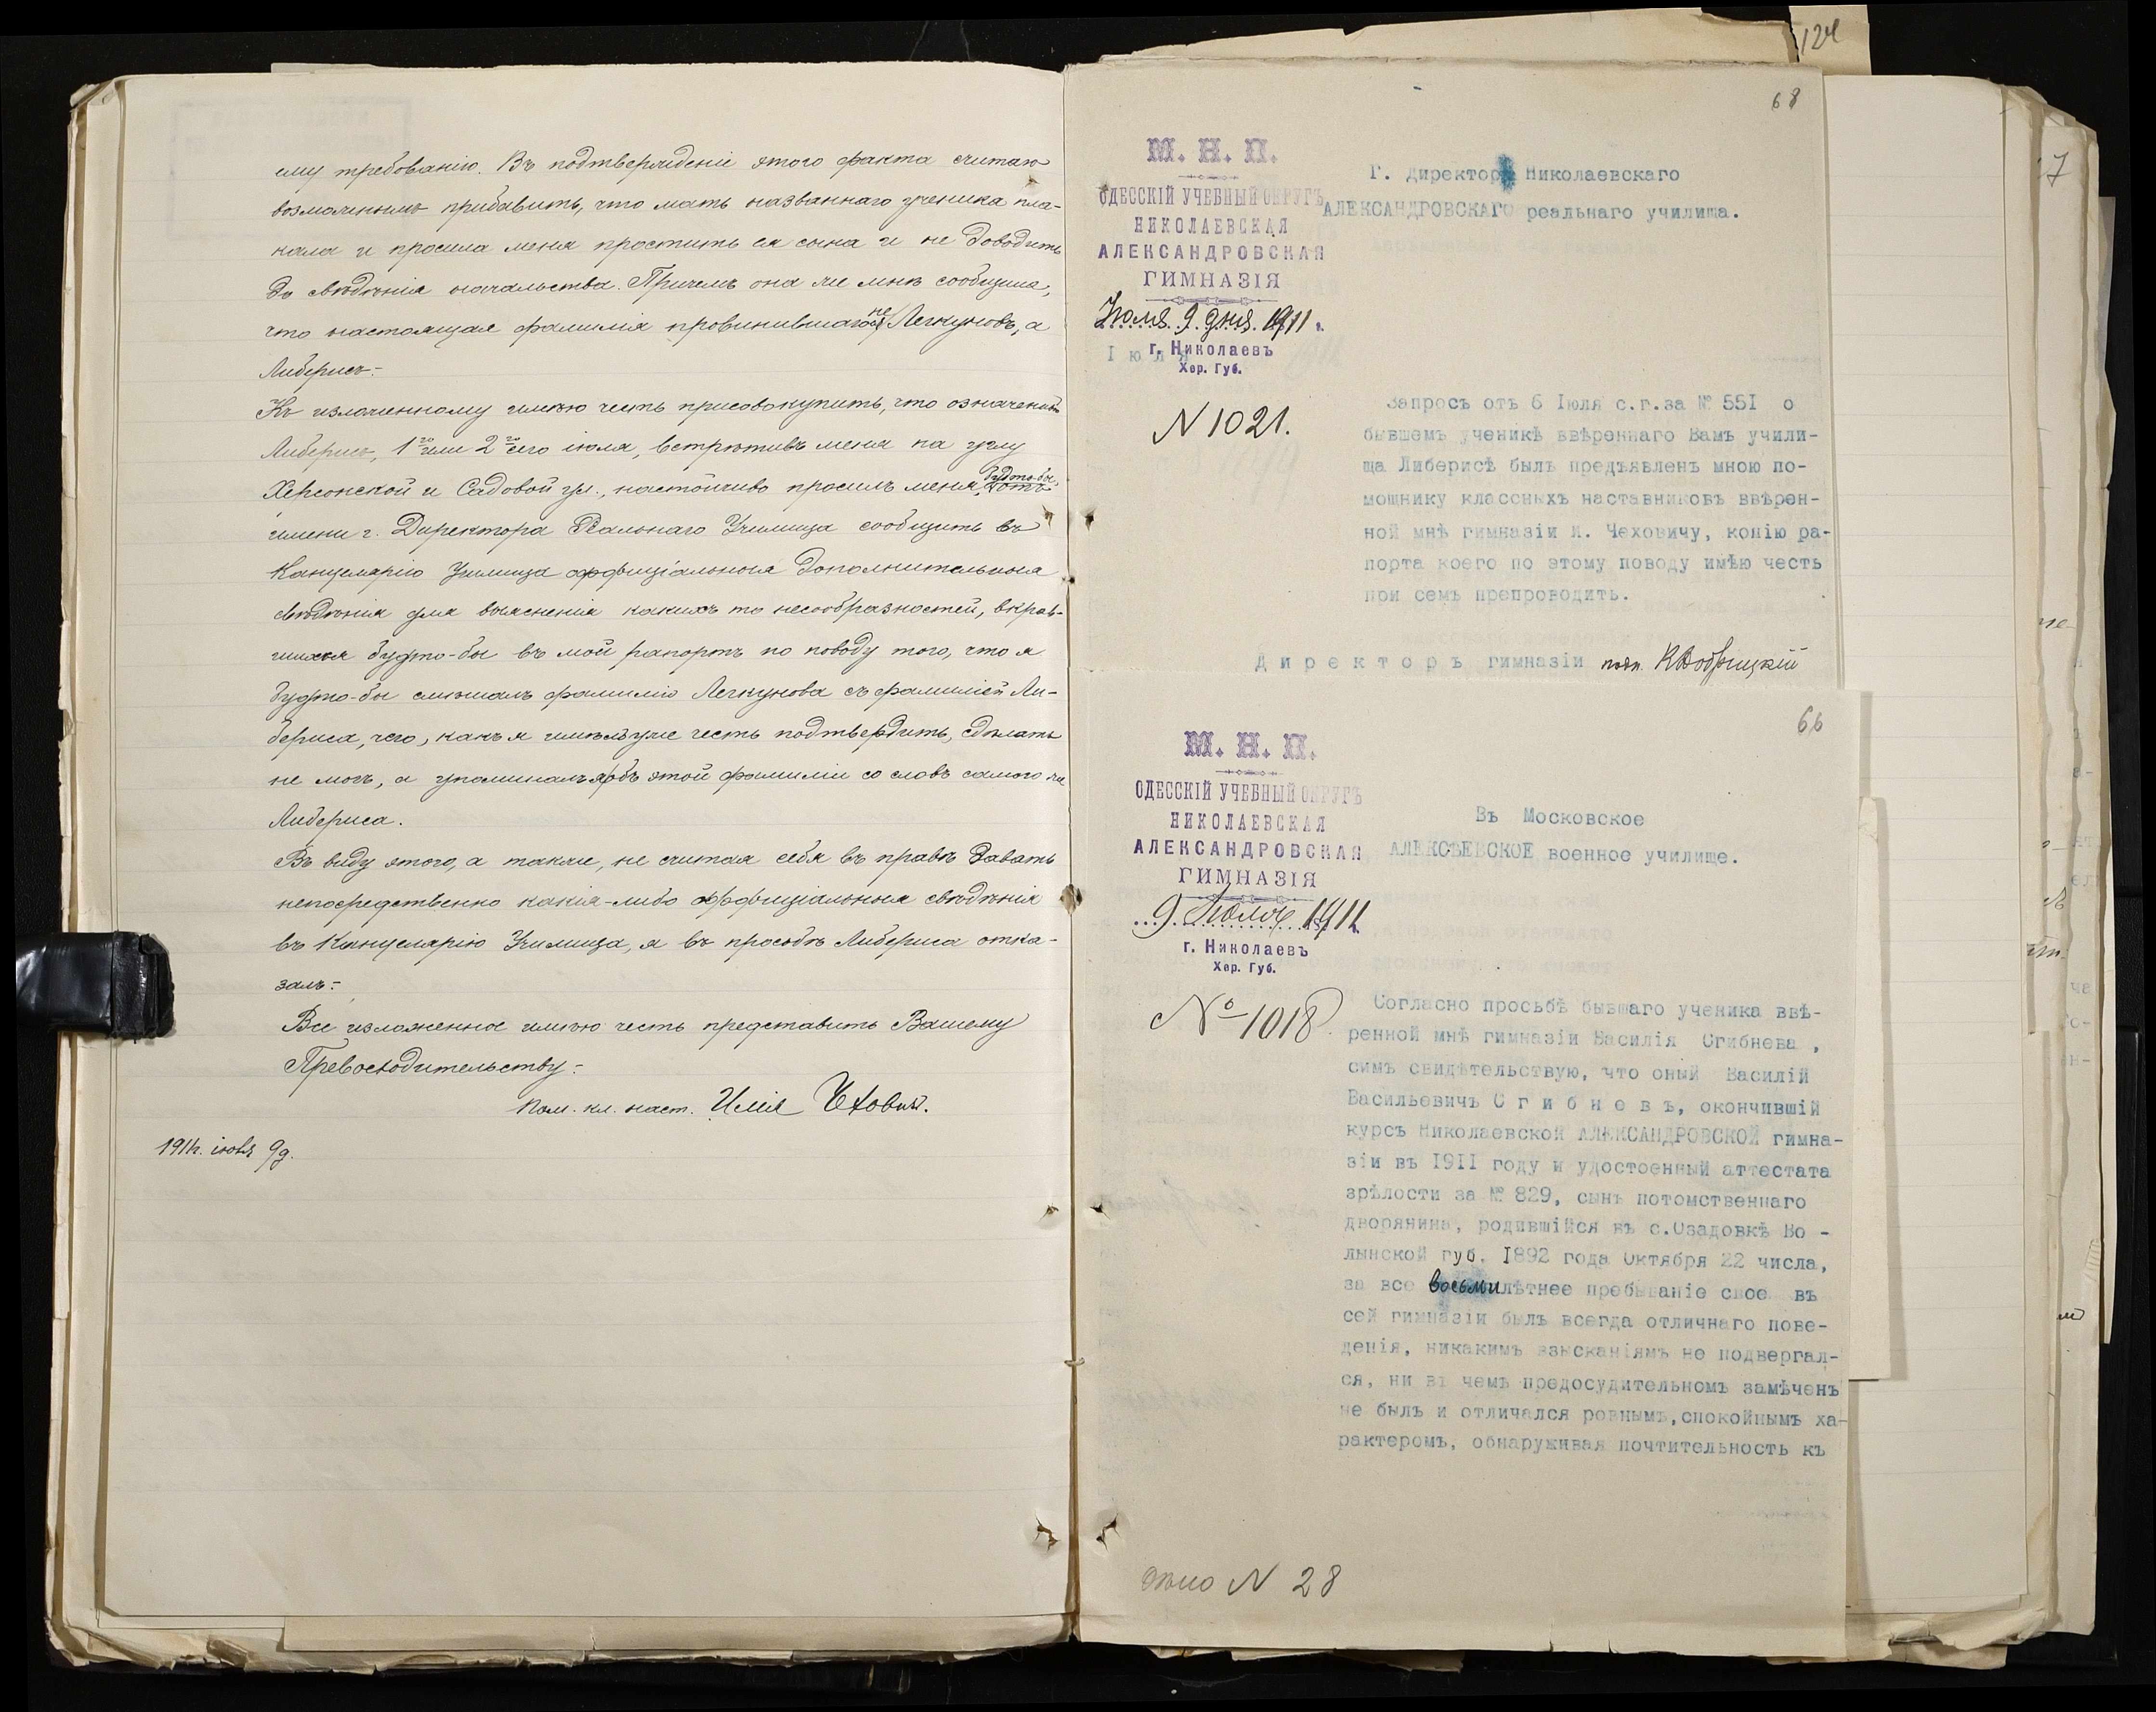 ему требованію. Въ подтвержденіе этого факта считаю
возможнымъ прибавить, что мать названнаго ученика пла-
кала и просила меня простить ея сына и не доводить
до свѣдѣнія начальства. Причемъ она же мнѣ сообщила,
что настоящая фамилія провинившагося не Легкуновъ, а
Либерисъ.-
Къ изложенному имѣю честь присовокупить, что означенный
Либерисъ, 1го или 2го сего іюля, встрѣтивъ меня на углу
Херсонской и Садовой ул., настойчиво просилъ меня, будто-бы
имени г. Директора Реальнаго Училища сообщить въ
Канцелярію Училища оффиціальныя дополнительныя
свѣдѣнія для выясненія какихъ то несообразностей, вкрав-
шихся будто-бы въ мой рапортъ по поводу того, что я
будто-бы смѣшалъ фамилію Легкунова съ фамиліей Ли-
бериса, чего, какъ я имѣлъ уже честь подтвердить, сдѣлать
не могъ, а упоминалъ я объ этой фамиліи со словъ самого же
Либериса.
Въ виду этого, а также, не считая себя въ правѣ давать
непосредственно какія-либо оффиціальныя свѣдѣнія
въ Канцелярію Училища, я въ просьбѣ Либериса отка-
залъ.-
Все изложенное имѣю честь представить Вашему
Превосходительству.-
Пом. кл. наст. Илія Чеховичъ.
1911г. іюля 9д.
124
68
М. Н. П.
ОДЕССКІЙ УЧЕБНЫЙ ОКРУГЪ
НИКОЛАЕВСКАЯ
АЛЕКСАНДРОВСКАЯ
ГИМНАЗІЯ
Іюля 9 дня 1911 г.
Іюля
г. Николаевъ
Хер. Губ.
N 1021.
Г. Директору Николаевскаго
АЛЕКСАНДРОВСКАГО реальнаго училища.
Запросъ отъ 6 Іюля с.г.за № 551 о
бывшемъ ученикѣ ввѣреннаго Вамъ учили-
ща Либерисѣ былъ предъявленъ мною по-
мощнику классныхъ наставниковъ ввѣрен-
ной мнѣ гимназіи И. Чеховичу, копію ра-
порта коего по этому поводу имѣю честь
при семъ препроводить.
Директоръ гимназіи подп.
66
М. Н. П.
ОДЕССКІЙ УЧЕБНЫЙ ОКРУГЪ
НИКОЛАЕВСКАЯ
АЛЕКСАНДРОВСКАЯ
ГИМНАЗІЯ
9 Іюля 1911
г. Николаевъ
Хер. Губ.
№ 1018
Въ Московское
АЛЕКСѢЕВСКОЕ военное училище.
Согласно просьбѣ бывшаго ученика ввѣ-
ренной мнѣ гимназіи Василія Сгибнева,
симъ свидѣтельствую, что оный Василій
Васильевичъ Сгибневъ, окончившій
курсъ Николаевской АЛЕКСАНДРОВСКОЙ гимна-
зіи въ 1911 году и удостоенный аттестата
зрѣлости за № 829, сынъ потомственнаго
дворянина, родившійся въ с.Озадовкѣ Во -
лынской губ. 1892 года Октября 22 числа,
за все восьмилѣтнее пребываніе свое въ
сей гимназіи былъ всегда отличнаго пове-
денія, никакимъ взысканіямъ не подвергал-
ся, ни въ чемъ предосудительномъ замѣченъ
не былъ и отличался ровнымъ,спокойнымъ ха-
рактеромъ, обнаруживая почтительность къ
дѣло N 28